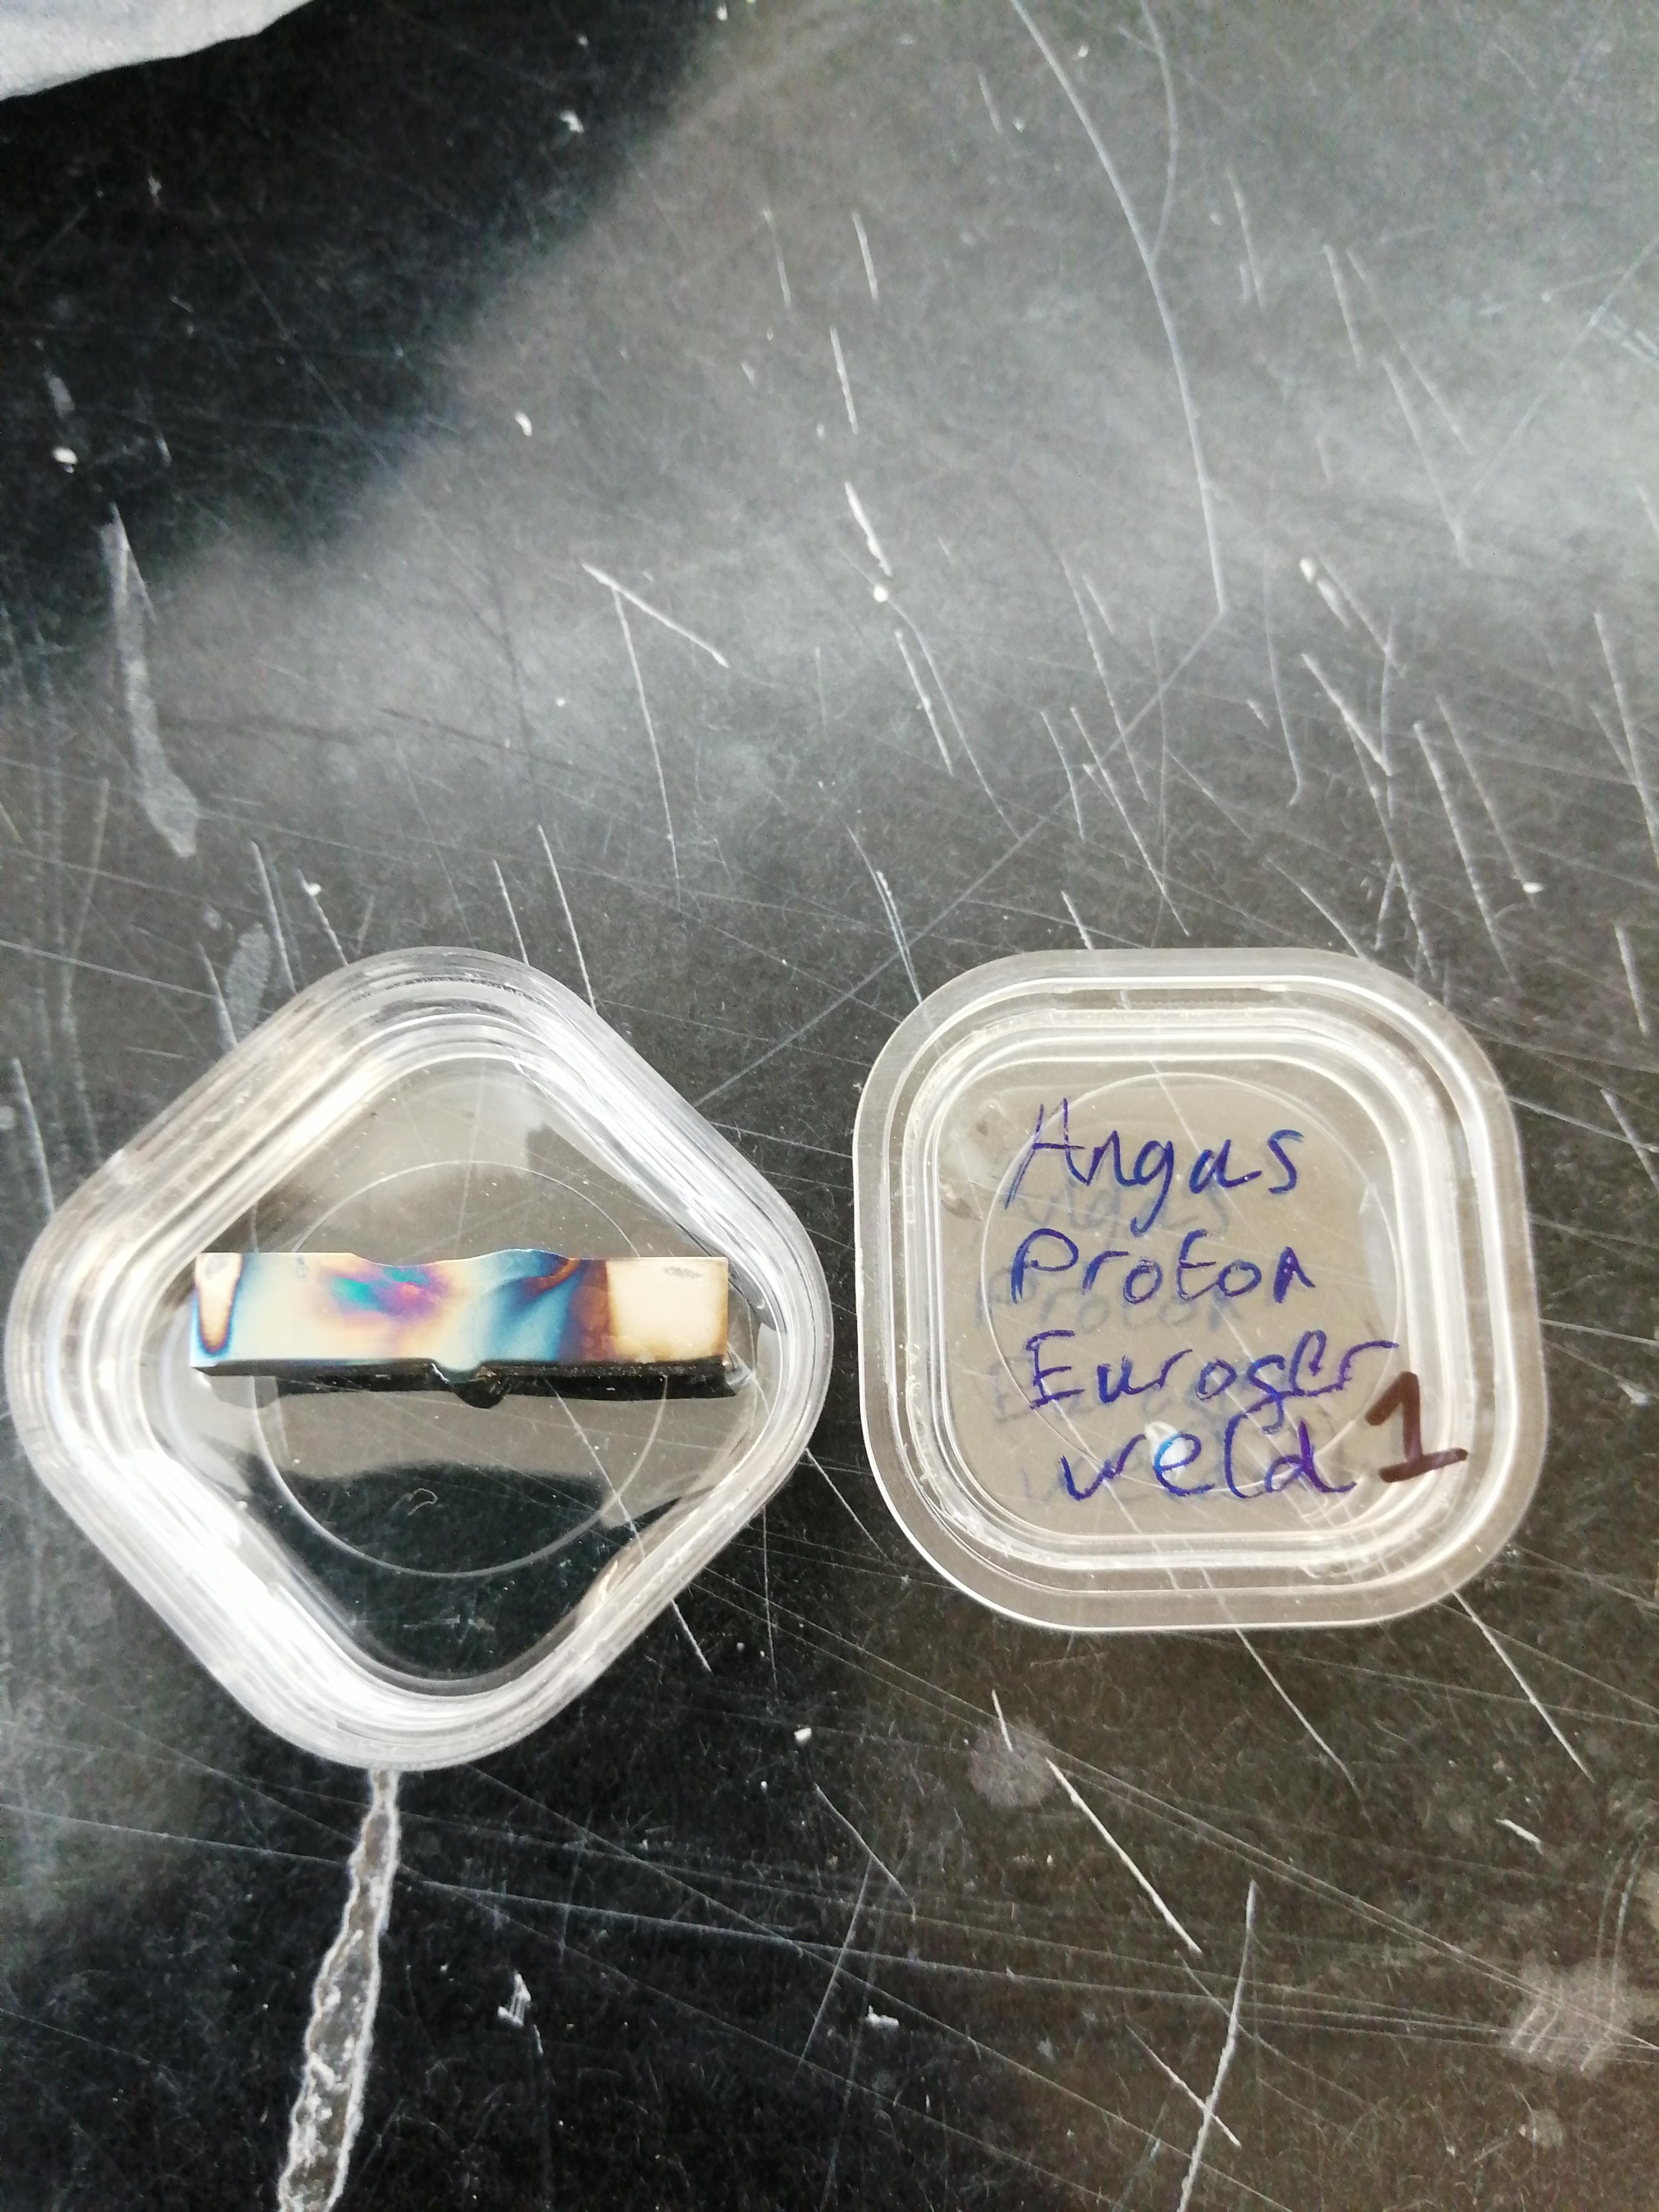 Angus
Proton
Eurofer
weld 1